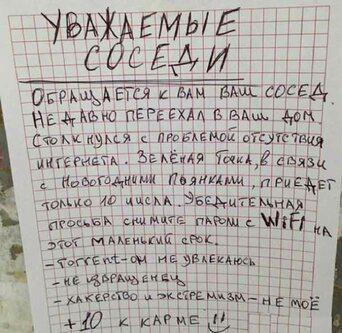 УВАЖАЕМЫЕ
СОСЕДИ
ОБРАЩАЕТСЯ К ВАМ ВАШ СОСЕД.
НЕДАВНО ПЕРЕЕХАЛ В ВАШ ДОМ
СТОЛКНУЛСЯ С ПРОБЛЕМОЙ ОТСУТСТВИЯ
ИНТЕРНЕТА. ЗЕЛЁНАЯ ТОЧКА, В СВЯЗИ
С НОВОГОДНИМИ ПЬЯНКАМИ, ПРИЕДЕТ
ТОЛЬКО 10 ЧИСЛА. УБЕДИТЕЛЬНАЯ
ПРОСЬБА СНИМИТЕ ПАРОЛЬ С WiFi НА
ЭТОТ МАЛЕНЬКИЙ СРОК.
- ТОРРЕНТ-ОМ НЕ УВЛЕКАЮСЬ
- НЕ ИЗВРАЩЕНЕЦ
- ХАКЕРСТВО И ЭКСТРЕМИЗМ - НЕ МОЁ
+10 К КАРМЕ